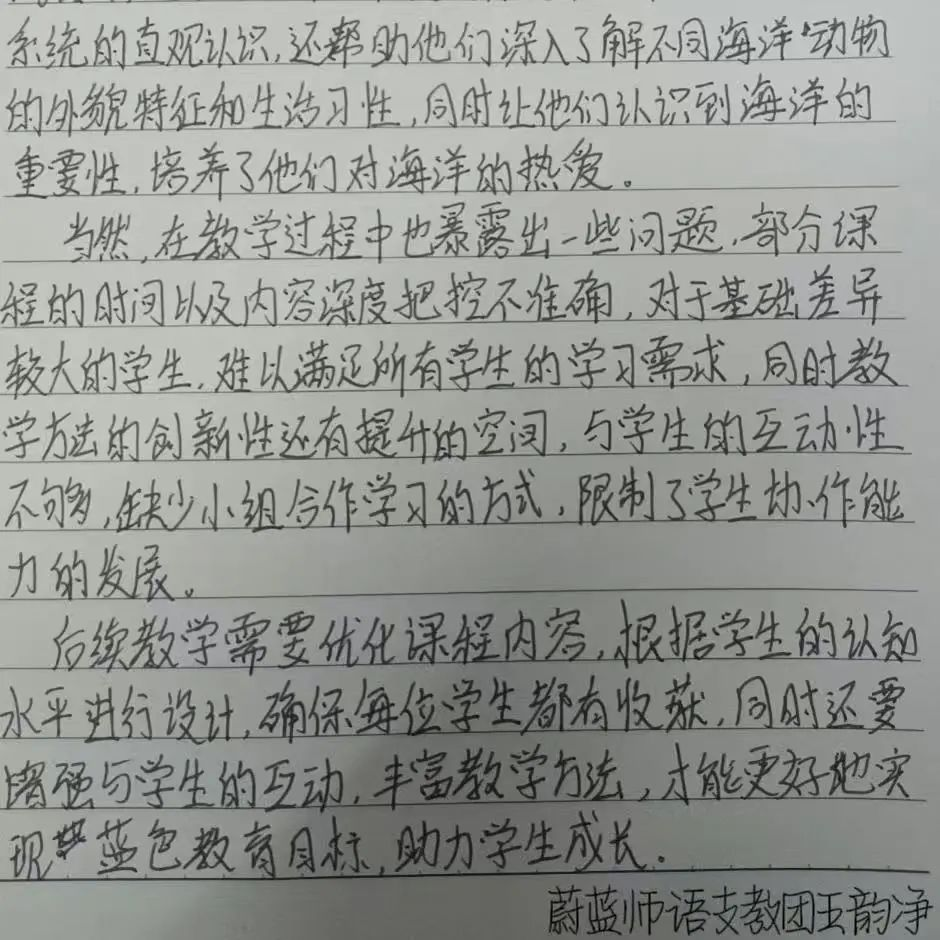 系统的直观认识,还帮助他们深入了解不同海洋动物
的外貌特征和生活习性,同时让他们认识到海洋的
重要性,培养了他们对海洋的热爱。
当然,在教学过程中也暴露出一些问题,部分课
程的时间以及内容深度把控不准确,对于基础差异
较大的学生,难以满足所有学生的学习需求,同时教
学方法的创新性还有提升的空间,与学生的互动性
不够,缺少小组合作学习的方式,限制了学生协作能
力的发展。
后续教学需要优化课程内容,根据学生的认知
水平进行设计,确保每位学生都有收获,同时还要
增强与学生的互动,丰富教学方法,才能更好地实
现蓝色教育目标,助力学生成长。
蔚蓝师语支教团王韵净